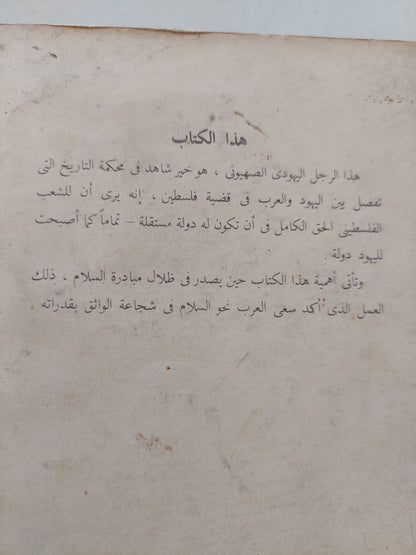 هذا الكتاب
هذا الرجل اليهودى الصهيونى ، هو خير شاهد فى محكمة التاريخ التى
تفصل بين اليهود والعرب فى قضية فلسطين ، إنه يرى أن للشعب
الفلسطينى الحق الكامل فى أن تكون له دولة مستقلة – تماماً كما أصبحت
لليهود دولة .
وتأتى أهمية هذا الكتاب حين يصدر فى ظلال مبادرة السلام ، ذلك
العمل الذى أكد سعى العرب نحو السلام فى شجاعة الواثق بقدراته .